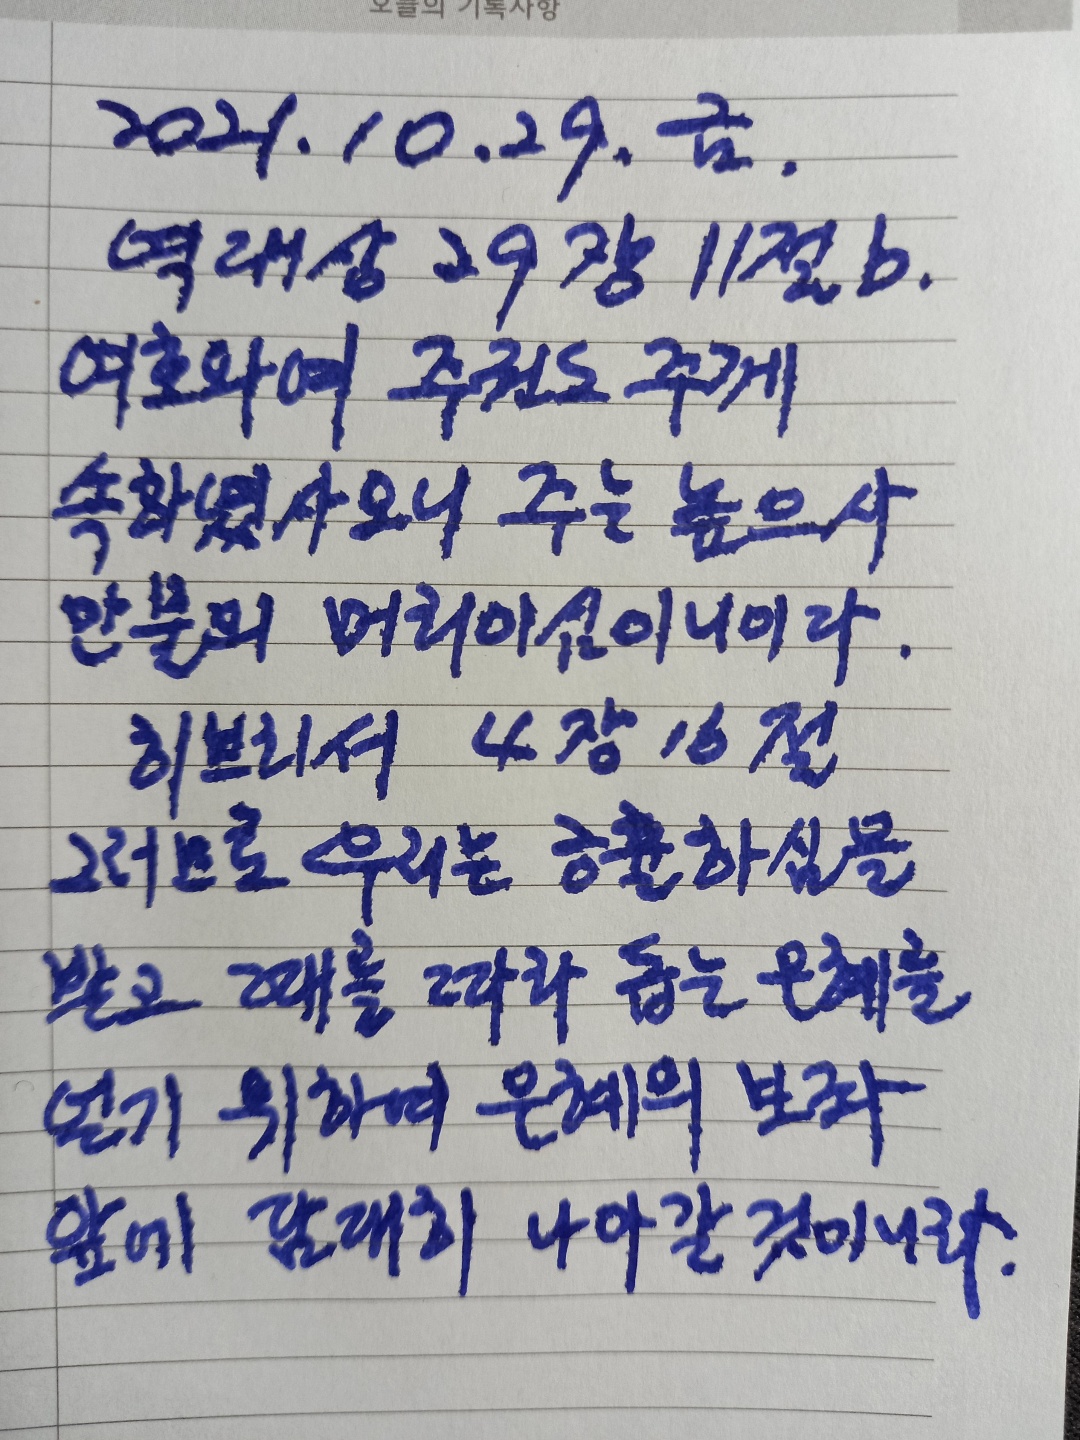 오늘의 기록사항
2021.10.29. 금.
역대상 29장 11절b.
여호와여 주권도 주께
속하였사오니 주는 높으사
만물의 머리이심이니이다.
히브리서 4장 16절
그러므로 우리는 긍휼하심을
받고 때를 따라 돕는 은혜를
얻기 위하여 은혜의 보좌
앞에 담대히 나아갈 것이니라.